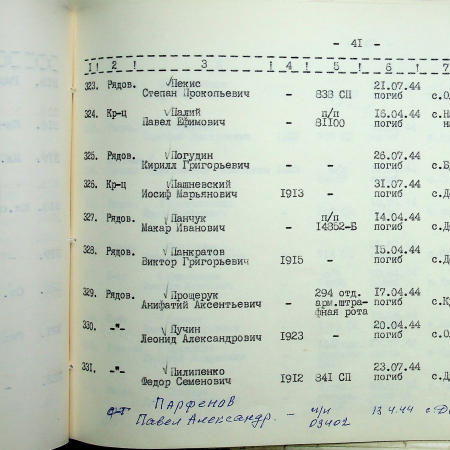 - 41 -
1 ! 2 ! 3 ! 4 ! 5 ! 6 ! 7
323. Рядов. Пекис 21.07.44
Степан Прокопьевич - 838 СП погиб с.О
324. Кр-ц Палий п/п 16.04.44 с.Н
Павел Ефимович - 81100 погиб н
325. Рядов. Погудин 26.07.44
Кирилл Григорьевич - - погиб с.Б
326. Кр-ц Пашневский 31.07.44
Иосиф Марьянович 1913 - погиб с.Д
327. Рядов. Панчук п/п 14.04.44
Макар Иванович - 14852-Б погиб с.Д
328. Рядов. Панкратов 15.04.44
Виктор Григорьевич 1915 - погиб с.Д
329. Рядов. Прощерук 294 отд. 17.04.44
Анифатий Аксентьевич - арм.штра- погиб с.К
фная рота
330. -"- Пучин 20.04.44
Леонид Александрович 1923 - погиб с.О
331. -"- Пилипенко 23.07.44
Федор Семенович 1912 841 СП погиб с.Д
ПАРФЕНОВ п/п 13.4.44 с.
Павел Александр. - 09402